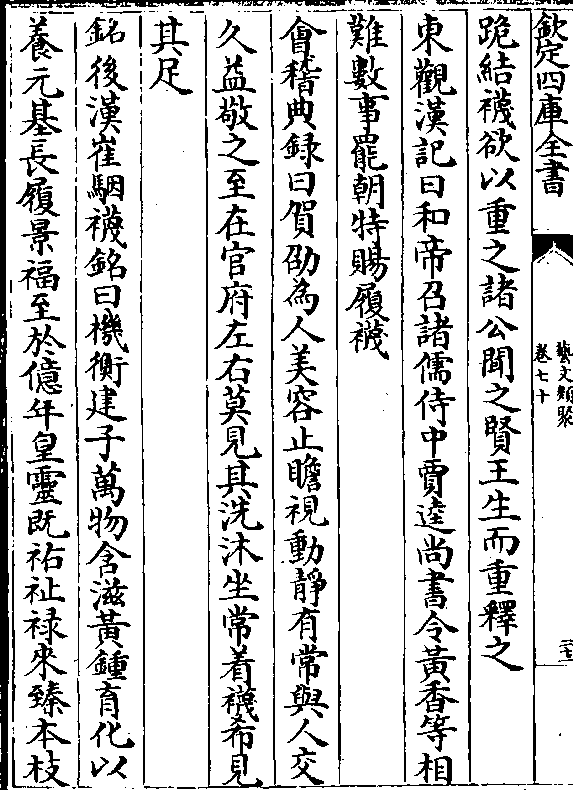 欽定四庫全書
藝文類聚
卷七十
跪結襪欲以重之諸公聞之賢王生而重釋之
東觀漢記曰和帝召諸儒侍中賈逵尚書令黃香等相
難數事罷朝特賜履襪
會稽典録曰賀劭為人美容止瞻視動靜有常與人交
久益敬之至在官府左右莫見其洗沐坐常着襪希見
其足
銘後漢崔駰襪銘曰機衡建子萬物含滋黃鍾育化以
養元基長履景福至於億年皇靈既祐祉禄來臻本枝